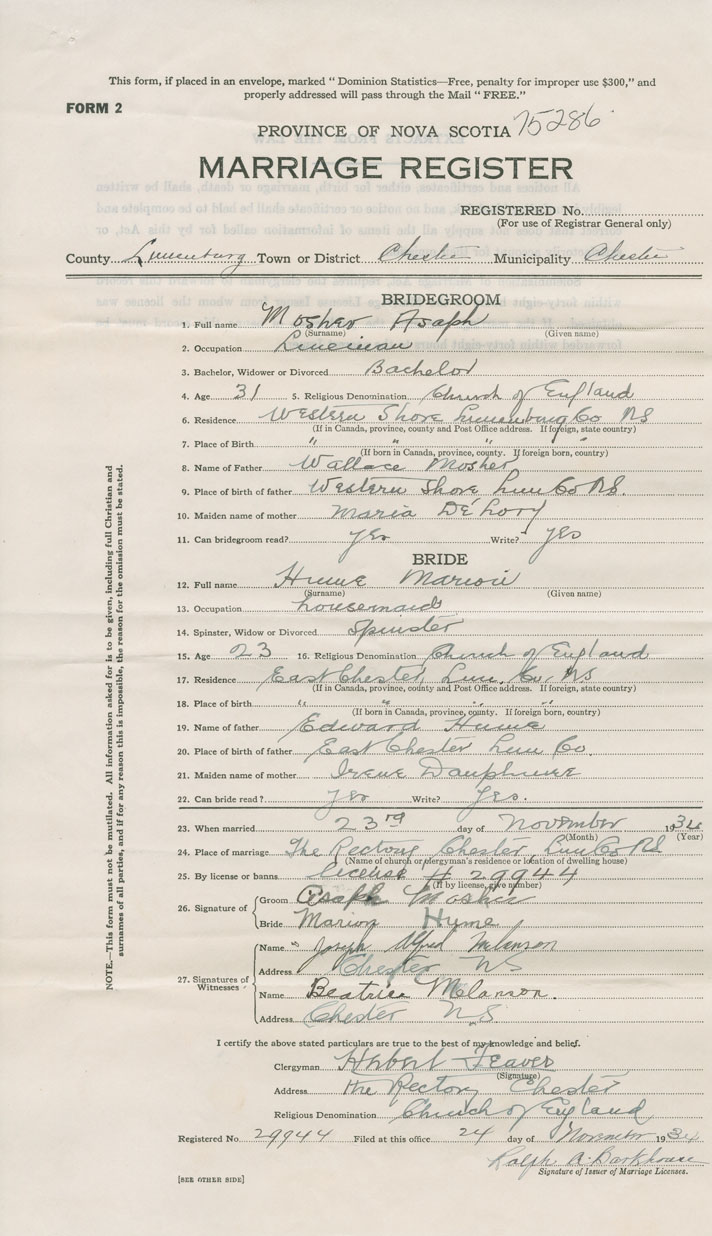 This form, if placed in an envelope, marked " Dominion Statistics—Free, penalty for improper use $300," and
properly addressed will pass through the Mail " FREE."
FORM 2
PROVINCE OF NOVA SCOTIA 75286
MARRIAGE REGISTER
REGISTERED No.
(For use of Registrar General only)
County Lunenburg Town or District Chester Municipality Chester
BRIDEGROOM
1. Full name Mosher Asaph
(Surname) (Given name)
2. Occupation Lineman
3. Bachelor, Widower or Divorced Bachelor
4. Age 31 5. Religious Denomination Church of England
6. Residence Western Shore Lunenburg Co NS
(If in Canada, province, county and Post Office address. If foreign, state country)
7. Place of Birth " " " "
(If born in Canada, province, county. If foreign born, country)
8. Name of Father Wallace Mosher
9. Place of birth of father Western Shore Lun Co NS.
10. Maiden name of mother Maria
11. Can bridegroom read? yes Write? yes
BRIDE
12. Full name Hume Marion
(Surname) (Given name)
13. Occupation housemaid
14. Spinster, Widow or Divorced Spinster
15. Age 23 16. Religious Denomination Church of England
17. Residence East Chester, Lun. Co. NS
(If in Canada, province, county and Post Office address. If foreign, state country)
18. Place of birth " " " "
(If born in Canada, province, county. If foreign born, country)
19. Name of father Edward Hume
20. Place of birth of father East Chester Lun Co.
21. Maiden name of mother Irene Dauphinee
22. Can bride read? yes Write? yes.
23. When married 23rd day of November 1934
(Month) (Year)
24. Place of marriage The Rectory Chester Lun Co NS
(Name of church or clergyman's residence or location of dwelling house)
25. By license or banns license # 29944
(If by license, give number)
26. Signature of
Groom Asaph Mosher
Bride Marion Hume
27. Signatures of Witnesses
Name Joseph Alfred Melanson
Address Chester NS
Name Beatrice Melanson.
Address Chester N.S.
I certify the above stated particulars are true to the best of my knowledge and belief.
Clergyman Herbert Feaver
(Signature)
Address The Rectory Chester
Religious Denomination Church of England
Registered No. 29944 Filed at this office 24 day of November 1934
Ralph A. Barkhouse
Signature of Issuer of Marriage Licenses.
[SEE OTHER SIDE]
NOTE.—This form must not be mutilated. All information asked for is to be given, including full Christian and
surnames of all parties, and if for any reason this is impossible, the reason for the omission must be stated.